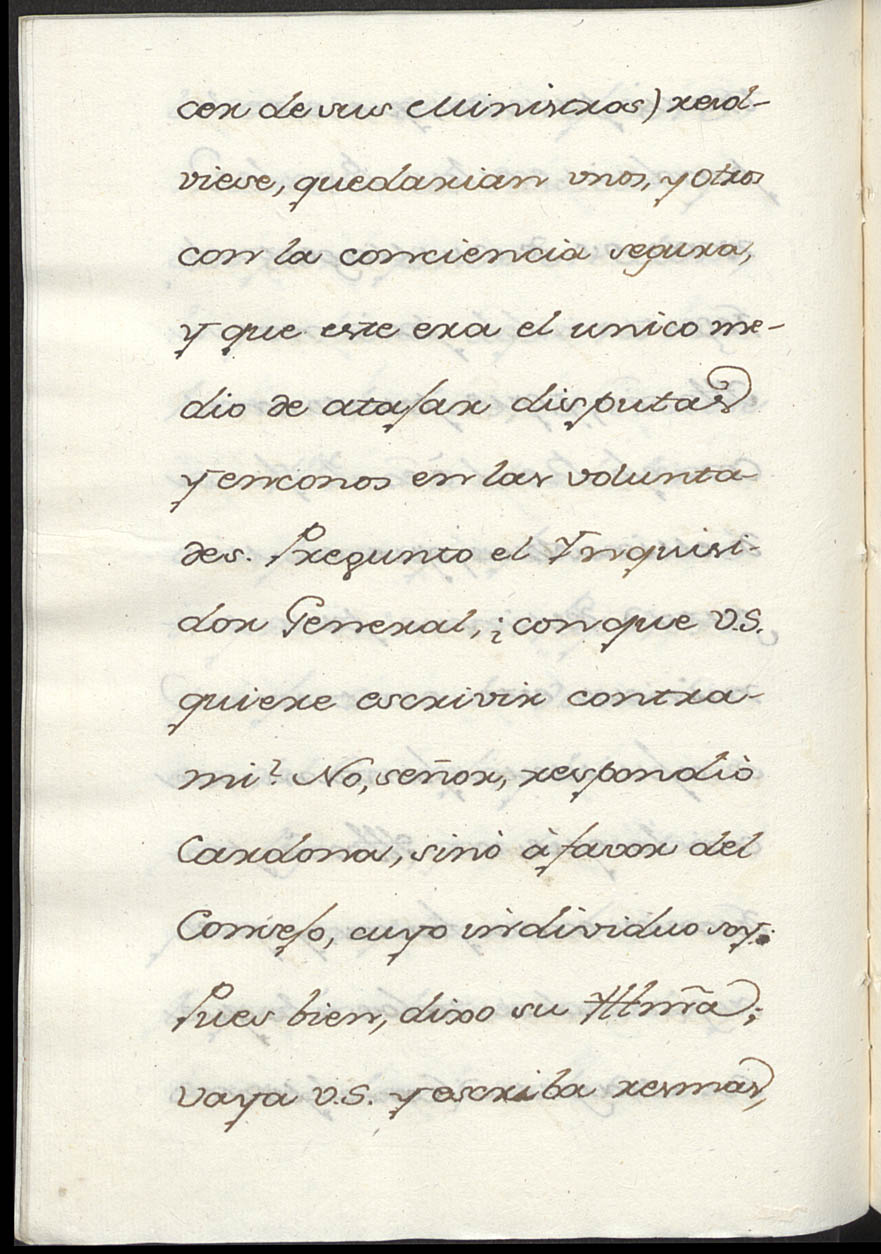 cer de sus Ministros) resol-
viese, quedarian vnos, y otros
con la conciencia segura,
y que este era el unico me-
dio de atajar disputas
y enconos en las volunta
des. Pregunto el Ynquisi-
dor General, ¿conque V.S.
quiere escrivir contra
mi? No, señor, respondiò
Cardona, sinò à favor del
Consejo, cuyo individuo soy.
Pues bien, dixo su Yllmã;
vaya V.S. y escriba resmas,